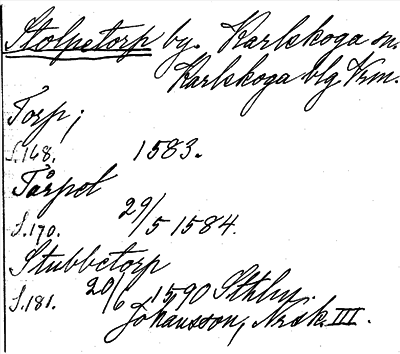 Stolpetorp by. Karlskoga sn.
Karlskoga blg Vrm.
Torp;
S.148. 1583.
Tårpet
S.170. 29/5 1584.
Stubbetorp
S.181. 20/6 1590 Sthlm.
Johansson, Nrsk III.